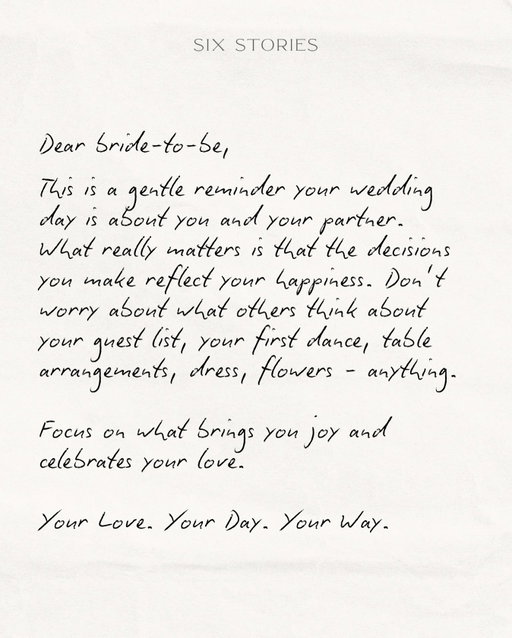 SIX STORIES
Dear bride-to-be,
This is a gentle reminder your wedding
day is about you and your partner.
What really matters is that the decisions
you make reflect your happiness. Don't
worry about what others think about
your guest list, your first dance, table
arrangements, dress, flowers - anything.
Focus on what brings you joy and
celebrates your love.
Your Love. Your Day. Your Way.